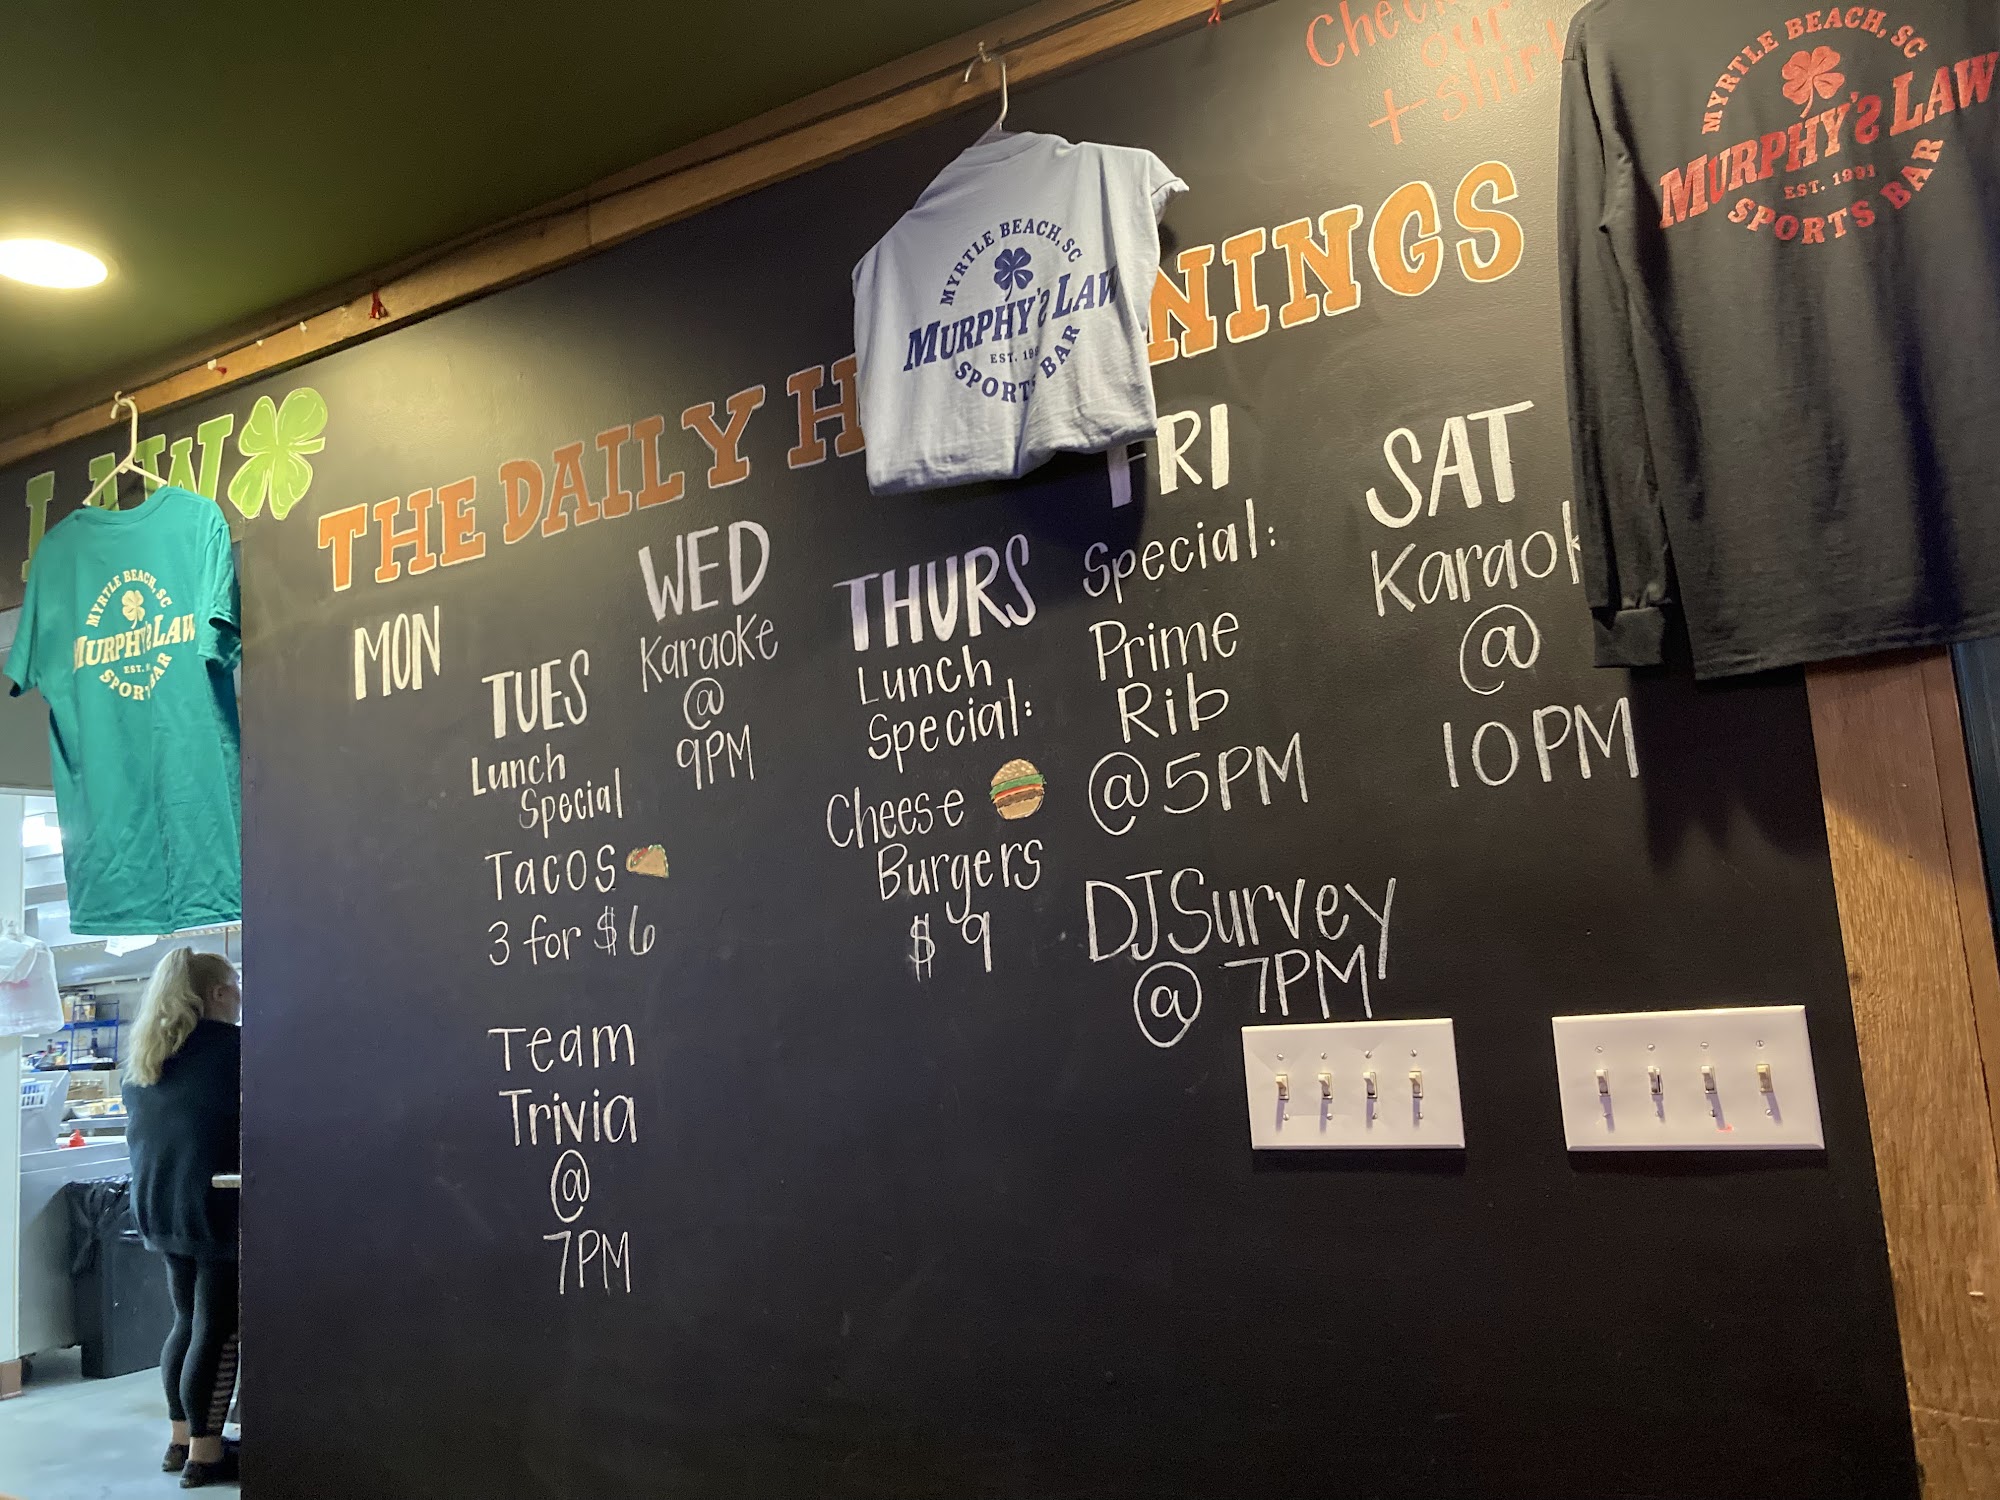 Check
our
t-shir
LAW
THE DAILY H NINGS
MON
TUES
Lunch
Special
Tacos
3 for $6
Team
Trivia
@
7PM
WED
Karaoke
@
9PM
THURS
Lunch
Special:
Cheese
Burgers
$9
FRI
Special:
Prime
Rib
@5PM
DJ Survey
@ 7PM
SAT
Karaok
@
10PM
MYRTLE BEACH, SC
MURPHY'S LAW
EST.
SPORTS BAR
MYRTLE BEACH, SC
MURPHY'S LAW
EST. 19
SPORTS BAR
MYRTLE BEACH, SC
MURPHY'S LAW
EST. 1991
SPORTS BAR